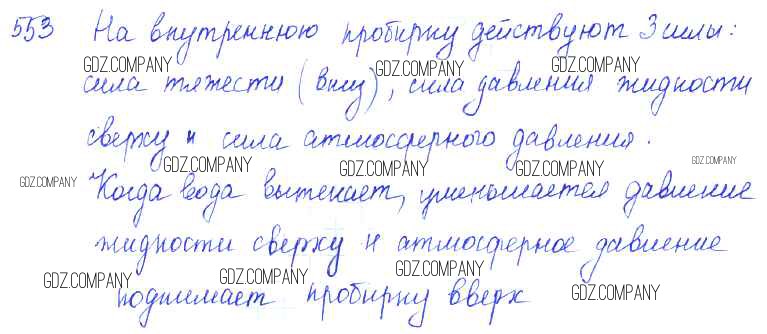 553 На внутреннюю пробирку действуют 3 силы:
GDZ.COMPANY GDZ.COMPANY GDZ.COMPANY
сила тяжести (вниз), сила давления жидкости
сверху и сила атмосферного давления.
GDZ.COMPANY GDZ.COMPANY GDZ.COMPANY GDZ.COMPANY GDZ.COMPANY
Когда вода вытекает, уменьшается давление
жидкости сверху и атмосферное давление
GDZ.COMPANY GDZ.COMPANY GDZ.COMPANY GDZ.COMPANY
поднимает пробирку вверх